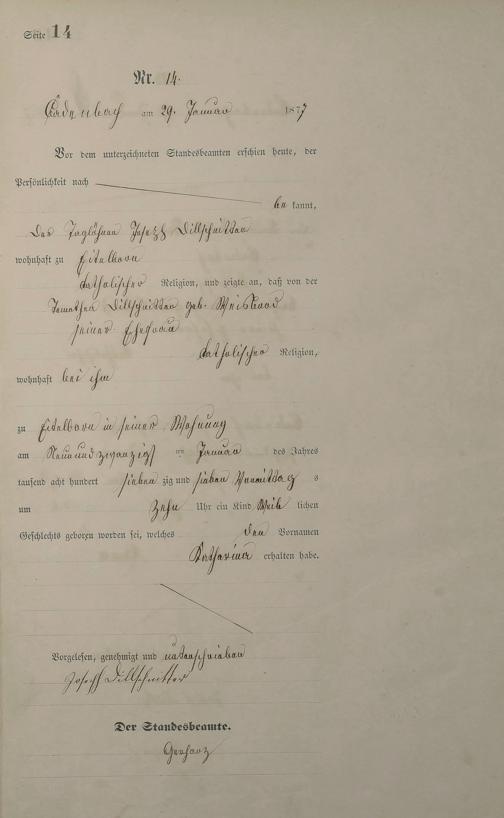 Seite 14
Nr. 14.
Cadenbach am 29. Januar 1877
Vor dem unterzeichneten Standesbeamten erschien heute, der
Persönlichkeit nach
bekannt,
Der Taglöhner Joseph Dillschnitter
wohnhaft zu Eitelborn
katholischer Religion, und zeigte an, daß von der
Dillschnitter geb. Weisbrod
seiner Ehefrau
katholischer Religion,
wohnhaft bei ihm
zu Eitelborn in seiner Wohnung
am Neunundzwanzigst en Januar des Jahres
tausend acht hundert siebenzig und sieben Vormittags
um zehn Uhr ein Kind weiblichen
Geschlechts geboren worden sei, welches den Vornamen
Katharina erhalten habe.
Vorgelesen, genehmigt und unterschrieben
Joseph Dillschnitter
Der Standesbeamte.
Gerharz